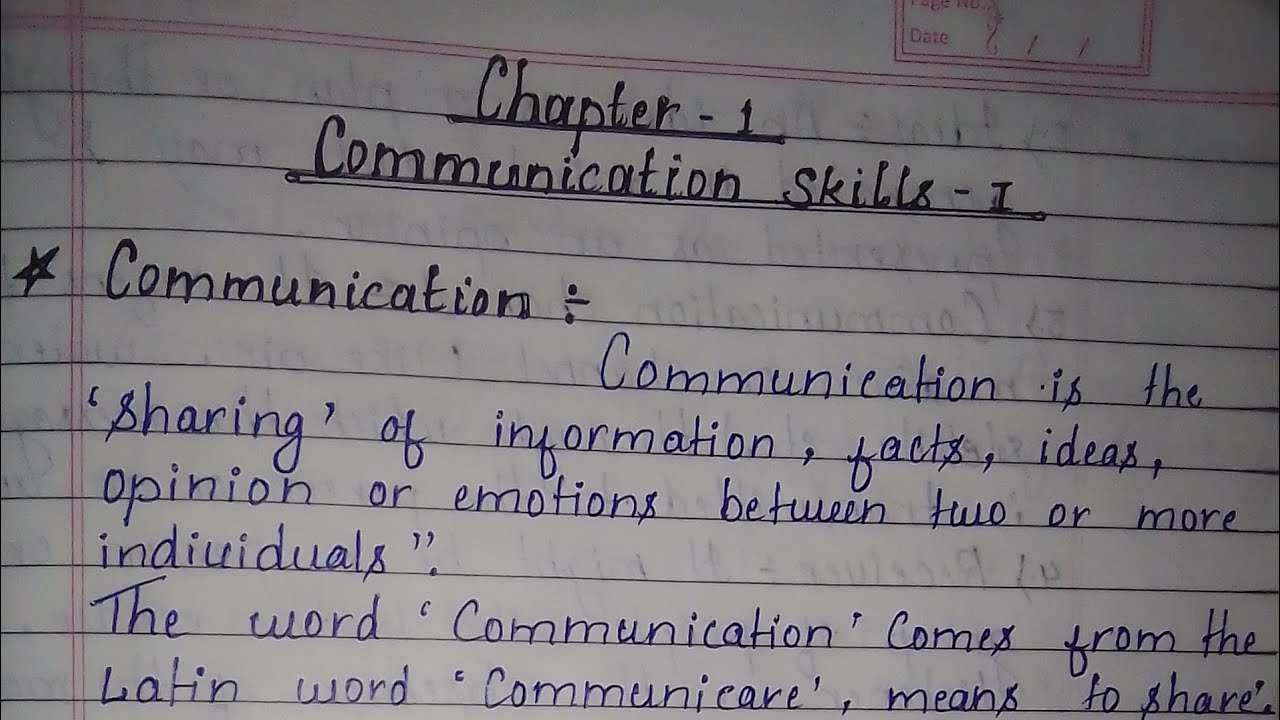 Page No.
Date / /
Chapter - 1
Communication Skills - I
* Communication ÷
Communication is the
'sharing' of information, facts, ideas,
opinion or emotions between two or more
individuals".
The word 'Communication' Comes from the
Latin word 'Communicare', means to share'.